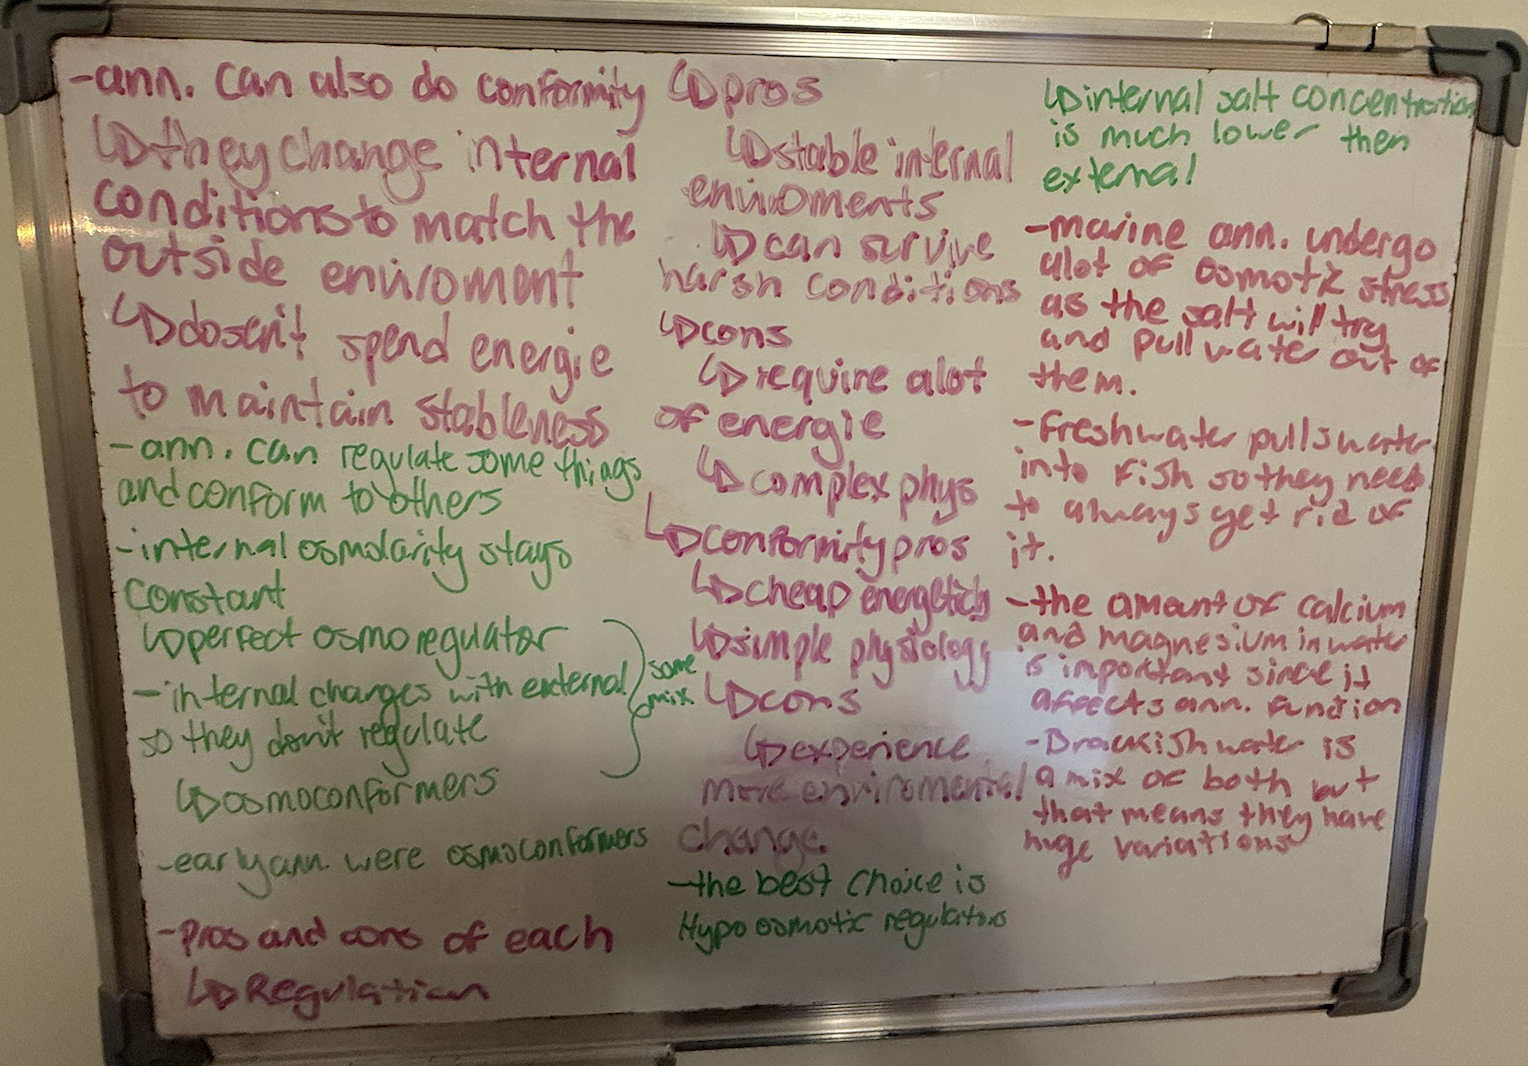 -ann. can also do conformity
↳they change internal
conditions to match the
outside enviroment
↳dosen't spend energie
to maintain stableness
-ann. can regulate some things
and conform to others
-internal osmolarity stays
constant
↳perfect osmoregulator
-internal changes with external
so they don't regulate
↳osmoconformers
some
mix
-early ann were osmoconformers
-Pros and cons of each
↳Regulation
↳pros
↳stable internal
enviroments
↳can survive
harsh conditions
↳cons
↳require alot
of energie
↳complex phys
↳conformity pros
↳cheap energeticly
↳simple physiology
↳cons
↳experience
more enviromental
change
-the best choice is
Hypo osmotic regulators
↳internal salt concentration
is much lower then
external
-marine ann. undergo
alot of osmotic stress
as the salt will try
and pull water out of
them.
-freshwater pulls water
into fish so they need
to always get rid of
it.
-the amount of calcium
and magnesium in water
is important since it
affects ann. function
-Brackish water is
a mix of both but
that means they have
huge variations